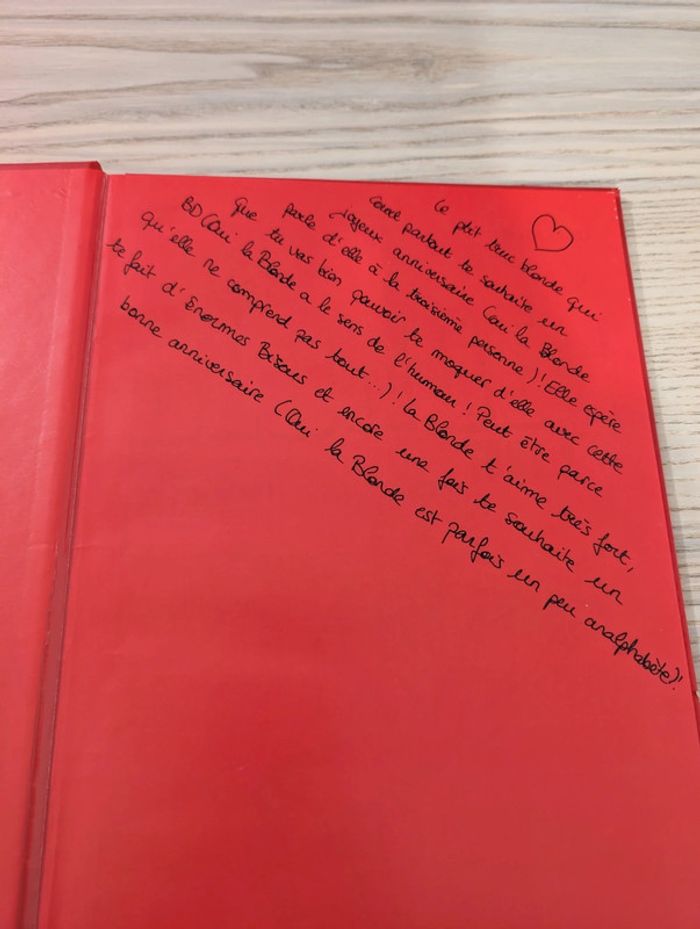 Le ptit truc blonde qui
court partout te souhaite un
joyeux anniversaire (oui la Blonde
parle d'elle à la troisième personne)! Elle espère
que tu vas bien pouvoir te moquer d'elle avec cette
BD (Oui la Blonde a le sens de l'humour! Peut être parce
qu'elle ne comprend pas tout...)! La Blonde t'aime très fort,
te fait d'énormes Bisous et encore une fois te souhaite un
bonne anniversaire (Oui la Blonde est parfois un peu analphabète)!